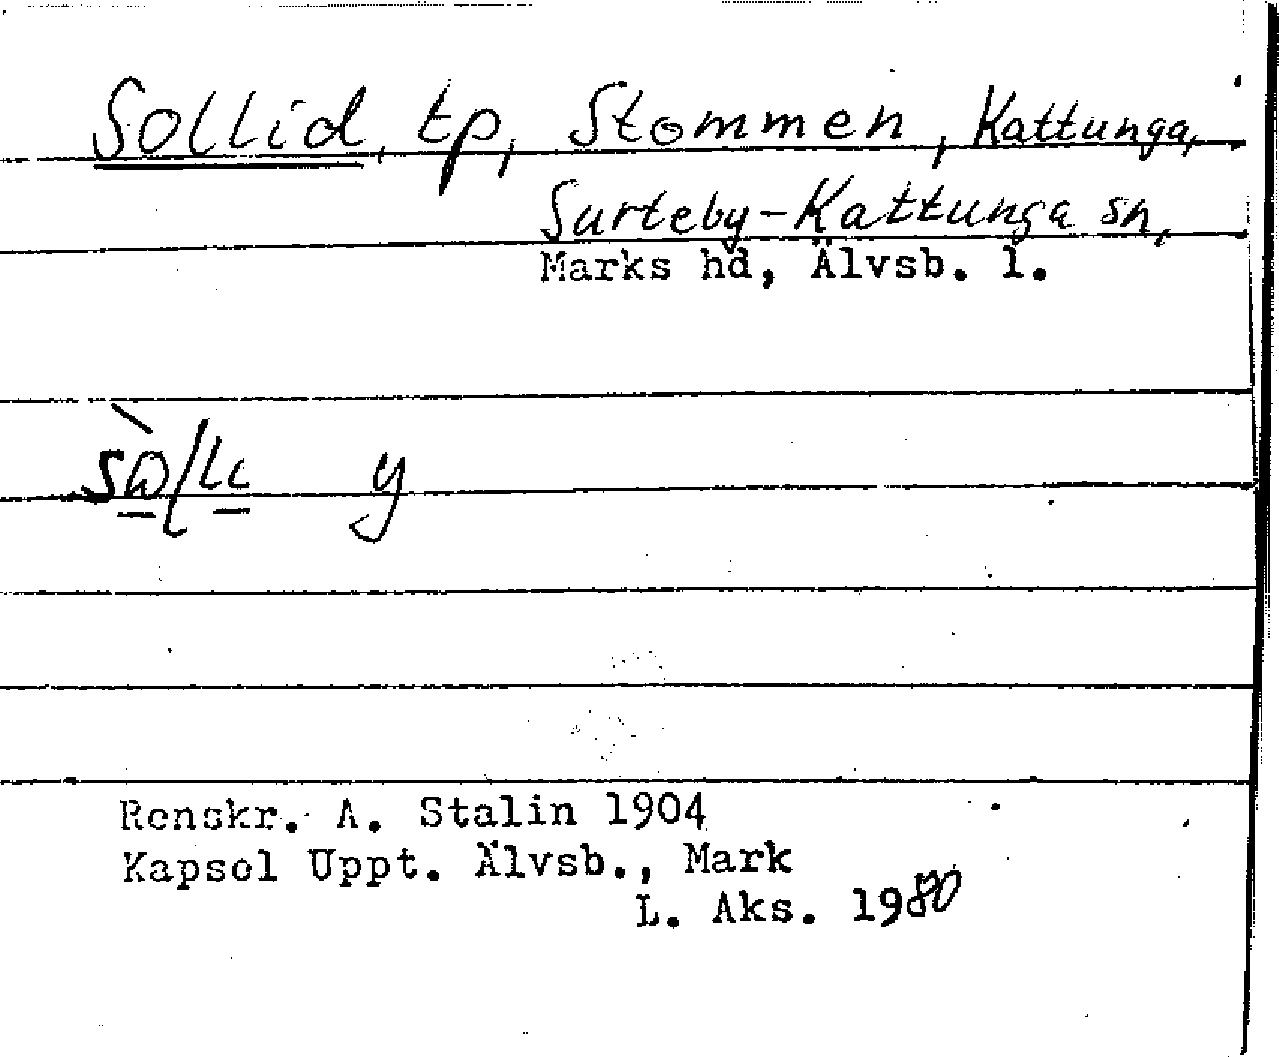 Sollid, tp, Stommen, Kattunga,
Surteby-Kattunga sn,
Marks hd, Älvsb. l.
y
Renskr. A. Stalin 1904
Kapsel Uppt. Älvsb., Mark
L. Aks. 1980